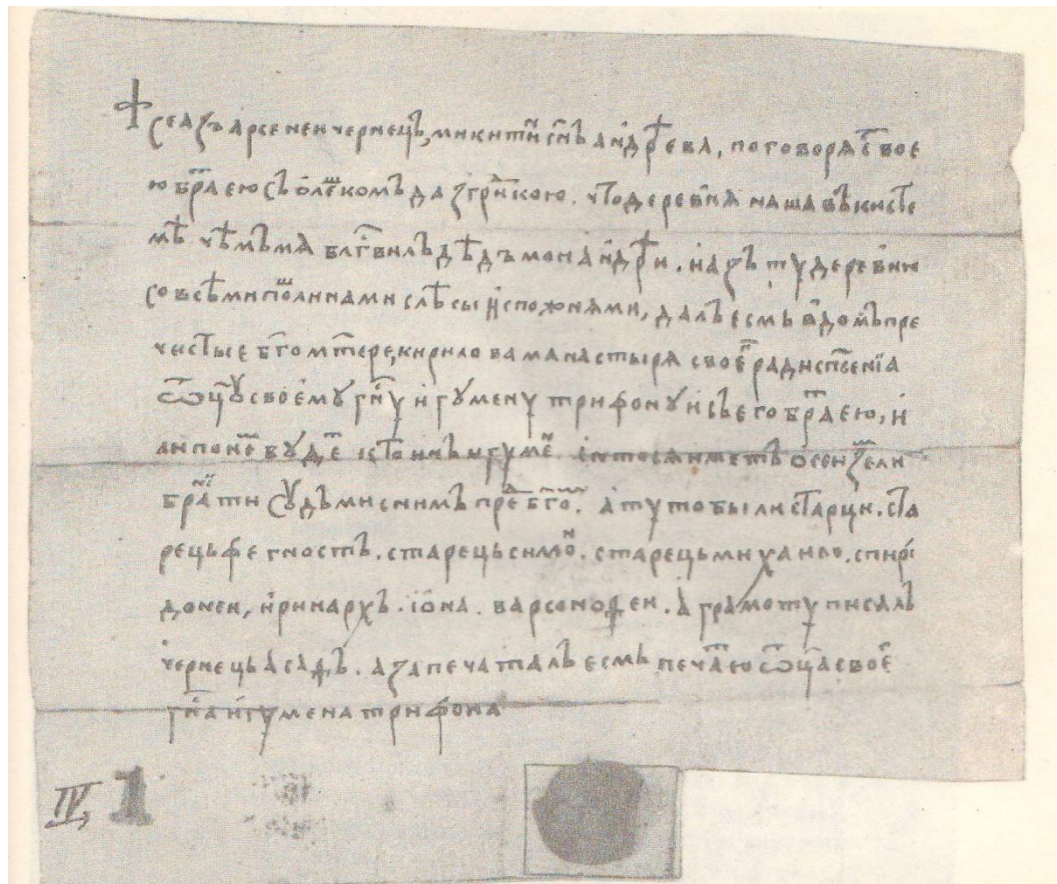 † се азъ арсенеи чернець, микитин снъ андрѣева, поговоря с твое
ю братею съ олешкомъ да з гринкою. что деревня наша в кисте
мѣ чѣмъ мя блгвилъ дѣдъ мои андрѣи. и азъ ту деревню
со всѣми пошлинами с лѣсы и с пожнями, далъ есмь в домъ пре
чистые бгомтере, кирилова манастыря своег ради спсениа
ѿцу своему гну игумену трифону и съ его братею, и
ли по нем буде кто инъ игуме
братии суд ми с нимъ пред бгом. а туто были старци. ста
рець фегностъ. старець симон. старець михаило. спири
донеи, иринархъ. иона. варсонофеи. а грамоту писалъ
чернець асафъ. а запечаталъ есмь печатею ѿца своег
гна игумена трифона
IV, 1